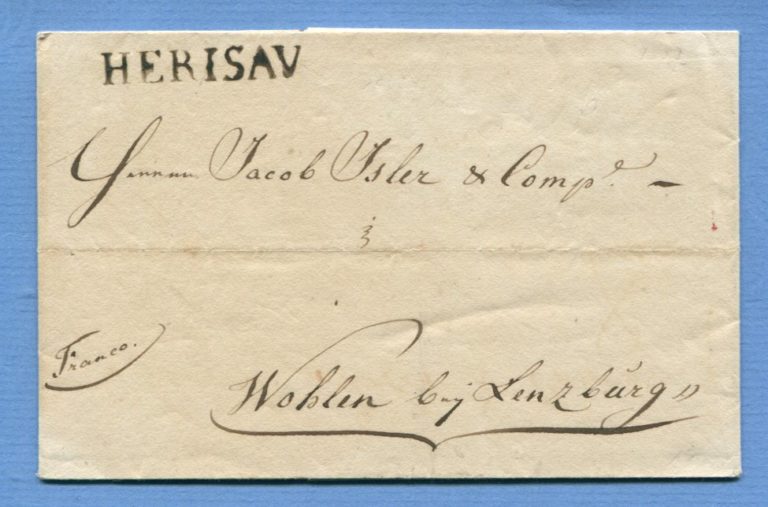 HERISAV
Herren Jacob Isler & Comp.e –
Franco.
Wohlen bey Lenzbŭrg